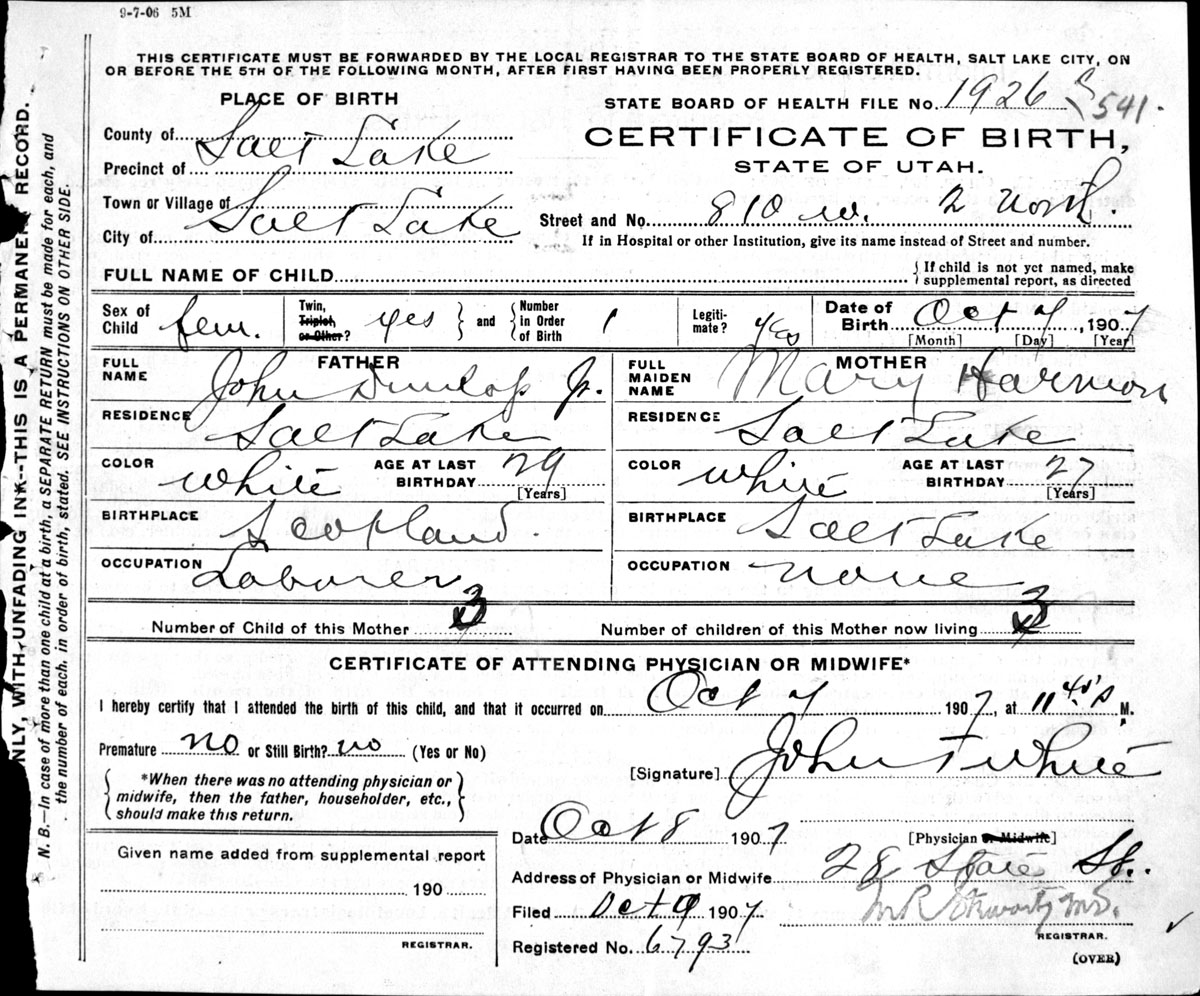 9-7-06 5M
THIS CERTIFICATE MUST BE FORWARDED BY THE LOCAL REGISTRAR TO THE STATE BOARD OF HEALTH, SALT LAKE CITY, ON
OR BEFORE THE 5TH OF THE FOLLOWING MONTH, AFTER FIRST HAVING BEEN PROPERLY REGISTERED.
PLACE OF BIRTH
STATE BOARD OF HEALTH FILE No. 1926 541.
County of Salt Lake
CERTIFICATE OF BIRTH,
Precinct of
STATE OF UTAH.
Town or Village of
City of Salt Lake
Street and No. 810 w. 2 North.
If in Hospital or other Institution, give its name instead of Street and number.
FULL NAME OF CHILD
{If child is not yet named, make
supplemental report, as directed
Sex of Child fem.
Twin, Triplet, or Other? yes } and { Number in Order of Birth 1
Legiti-mate? yes
Date of Birth Oct 7, 1907
[Month] [Day] [Year]
FATHER
FULL NAME John Dunlop Jr.
MOTHER
FULL MAIDEN NAME Mary Harmon
RESIDENCE Salt Lake
RESIDENCE Salt Lake
COLOR White AGE AT LAST BIRTHDAY 29 [Years]
COLOR White AGE AT LAST BIRTHDAY 27 [Years]
BIRTHPLACE Scotland.
BIRTHPLACE Salt Lake
OCCUPATION Laborer
OCCUPATION none
Number of Child of this Mother 3
Number of children of this Mother now living 3
CERTIFICATE OF ATTENDING PHYSICIAN OR MIDWIFE*
I hereby certify that I attended the birth of this child, and that it occurred on Oct 7 1907, at 11 40 M.
Premature no or Still Birth? no (Yes or No)
[Signature] John T White
{*When there was no attending physician or
midwife, then the father, householder, etc.,
should make this return.}
Date Oct 8 1907
[Physician or Midwife]
Given name added from supplemental report
Address of Physician or Midwife 28 State St.
190
Filed Oct 9 1907
REGISTRAR.
Registered No. 6793
REGISTRAR.
(OVER)
NLY, WITH UNFADING INK--THIS IS A PERMANENT RECORD.
N. B.—In case of more than one child at a birth, a SEPARATE RETURN must be made for each, and
the number of each, in order of birth, stated. SEE INSTRUCTIONS ON OTHER SIDE.